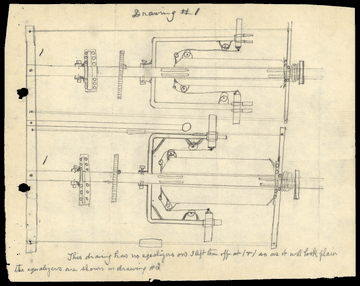 Drawing #1
1
1
This drawing has no equalizers on I left them off at /r/ an as it will look plain
the equalizers are shown in drawing #2